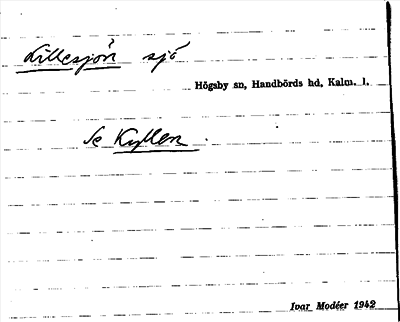 Lillesjön sjö
Högsby sn, Handbörds hd, Kalm. l.
Se Kyllen.
Ivar Modéer 1942